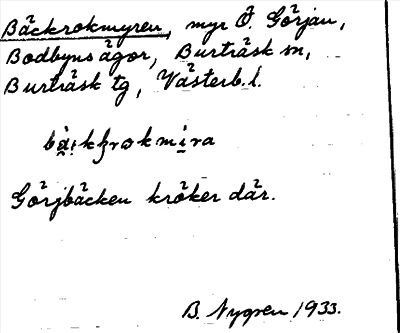 Bäckrokmyren, myr Ö. Görjau,
Bodbyns ägor, Burträsk sn,
Burträsk tg, Västerb. l.
Görjbäcken kröker där.
B. Nygren 1933.